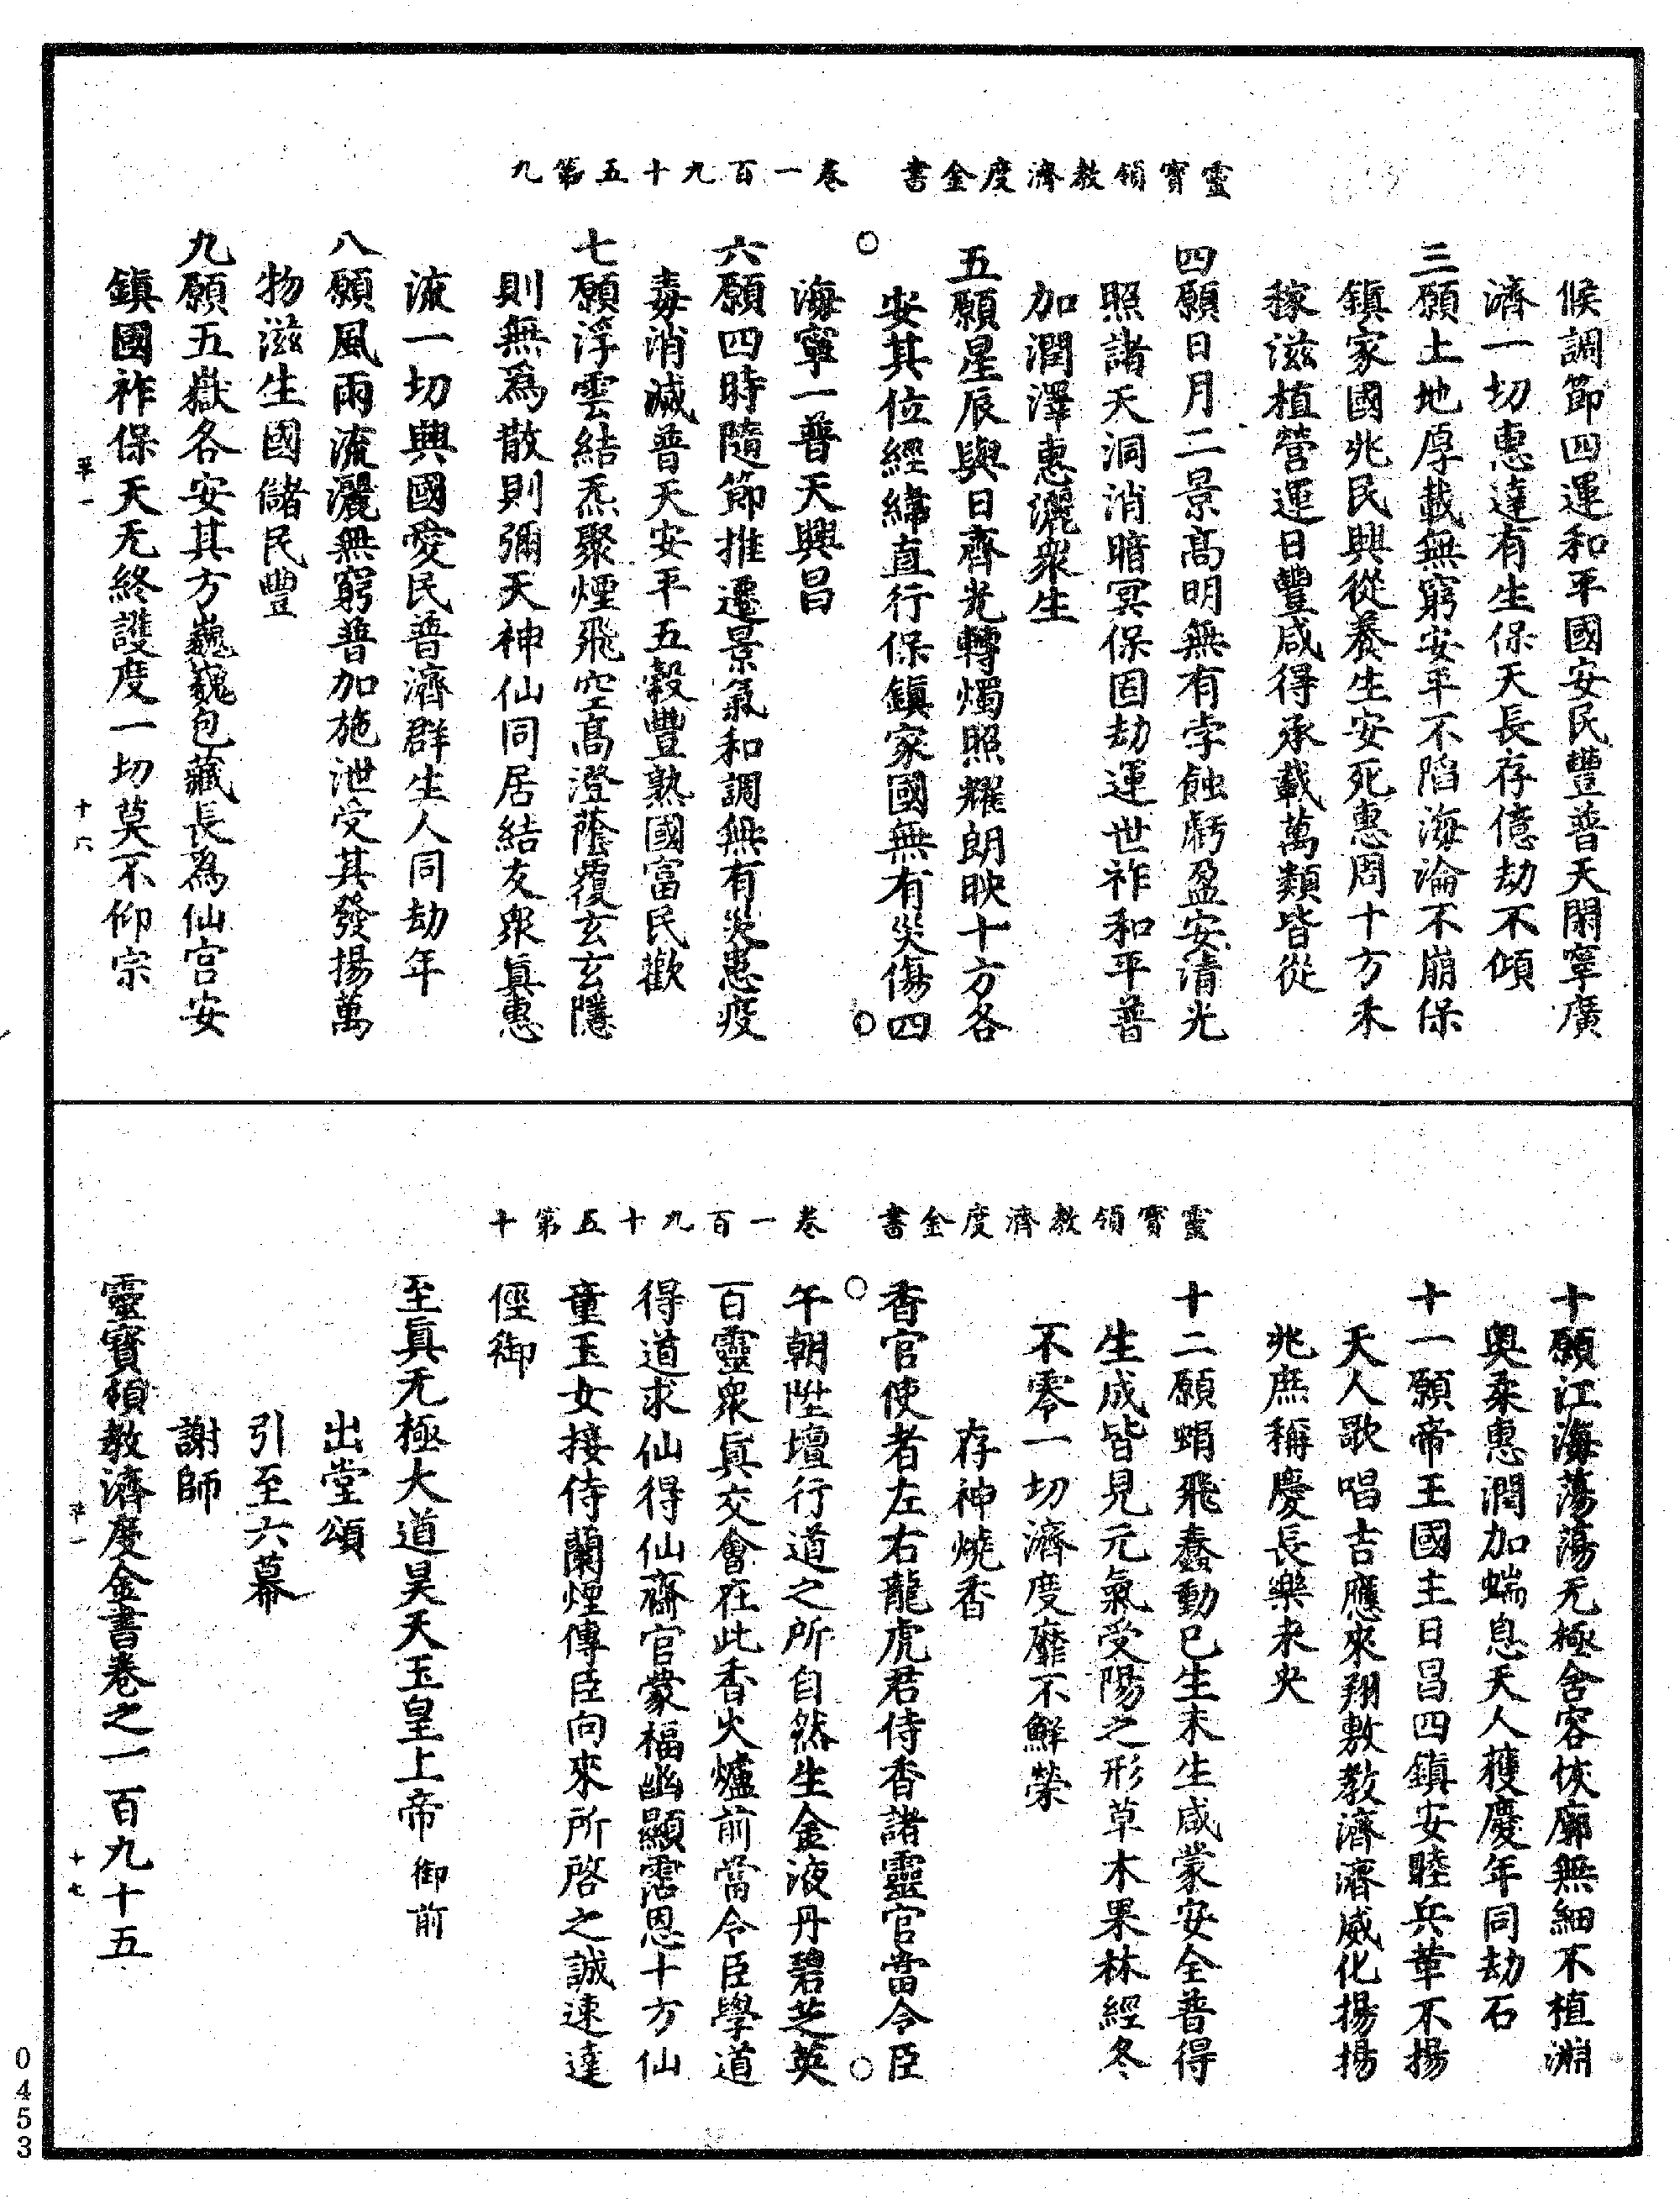 靈寶領教濟度金書　卷一百九十五第九
候調節四運和平國安民豐普天閑寧廣
濟一切惠達有生保天長存億劫不傾
三願土地厚載無窮安平不陷海淪不崩保
鎮家國兆民興從養生安死惠周十方禾
稼滋植營運日豐咸得承載萬類皆從
四願日月二景高明無有孛蝕虧盈安清光
照諸天洞消暗冥保固劫運世祚和平普
加潤澤惠灑衆生
五願星辰與日齊光轉燭照耀朗映十方各
安其位經緯直行保鎮家國無有災傷四
海寧一普天興昌
六願四時隨節推遷景氣和調無有災患疫
毒消滅普天安平五穀豐熟國富民歡
七願浮雲結炁聚煙飛空高澄蔭覆玄玄隱
則無為散則彌天神仙同居結友衆真惠
流一切興國愛民普濟群生人同劫年
八願風雨流灑無窮普加施泄受其發揚萬
物滋生國儲民豐
九願五嶽各安其方巍巍包藏長為仙宮安
鎮國祚保天无終護度一切莫不仰宗
草一　十六
靈寶領教濟度金書　卷一百九十五第十
十願江海蕩蕩无極含容恢廓無細不植淵
奧柔惠潤加蠕息天人蒦慶年同劫石
十一願帝王國主日昌四鎮安睦兵革不揚
天人歌唱吉應來翔敷教濟濟威化揚揚
兆庶稱慶長樂未央
十二願蜎飛蠢動已生未生咸蒙安全普得
生成皆見元氣受陽之形草木果林經冬
不零一切濟度靡不鮮榮
存神燒香
香官使者左右龍虎君侍香諸靈官當令臣
午朝陞壇行道之所自然生金液丹碧芝英
百靈衆真交會在此香火爐前當令臣學道
得道求仙得仙齋官蒙福幽顯霑恩十方仙
童玉女接侍蘭煙傳臣向來所啓之誠速達
徑御
至真无極大道昊天玉皇上帝 御前
出堂頌
引至六幕
謝師
靈寶領教濟度金書卷之一百九十五
草一　十七
0453